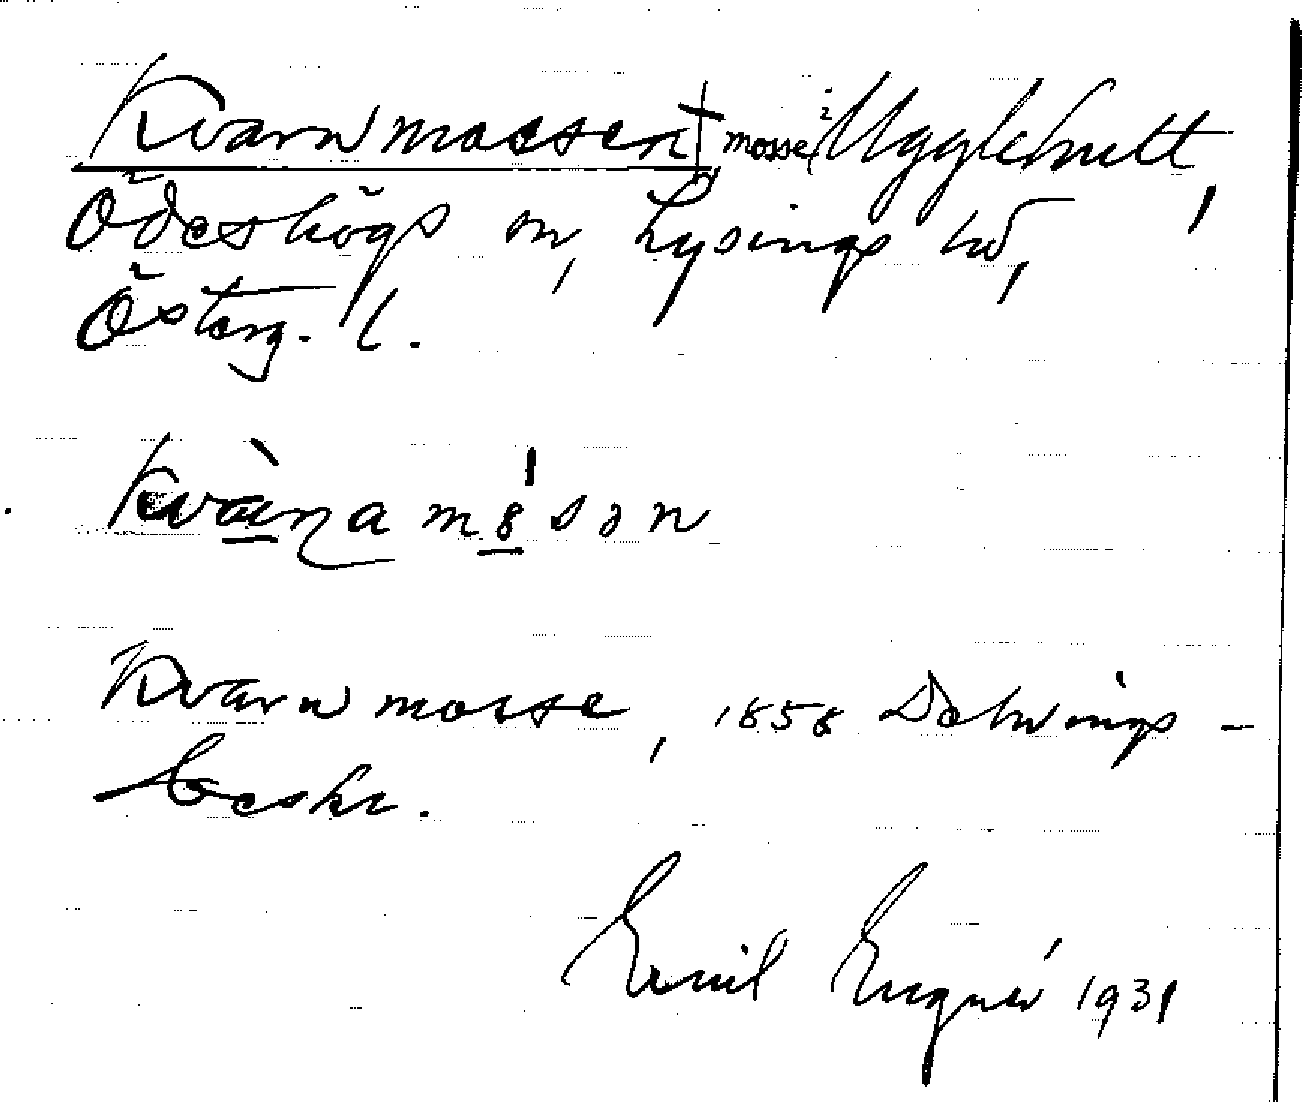 Kvarnmossen † mosse i Ugglehult,
Ödeshögs sn, Lysings hd,
Österg. l.
Kvàɳa mósən
Kvarnmosse, 1858 Delnings-
beskr.
Emil Engné 1931